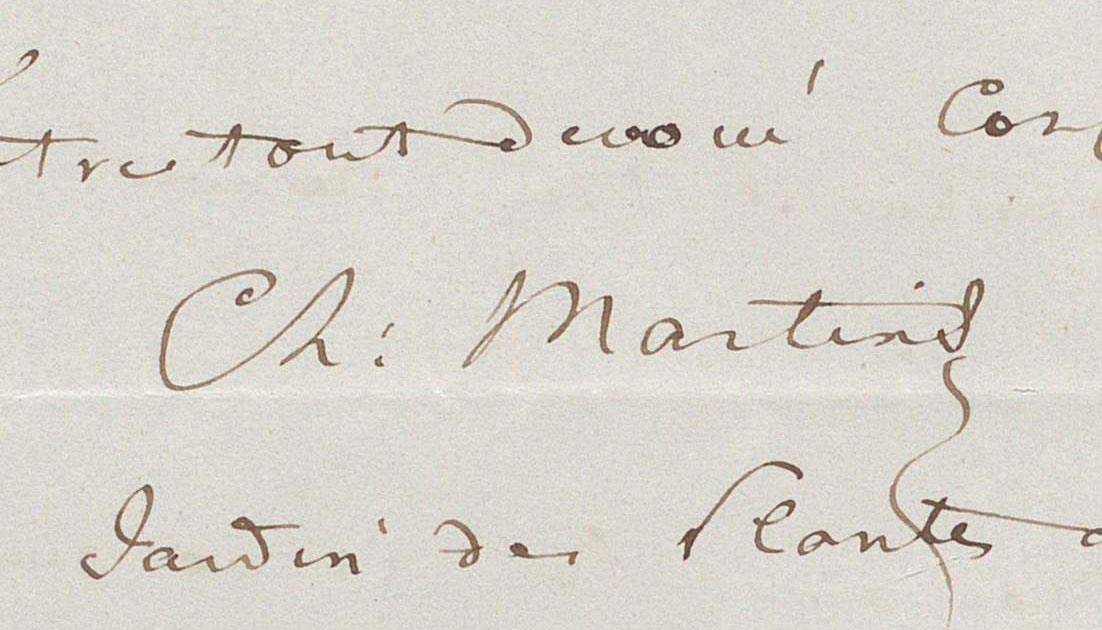 tre tout devoué Con
Ch: Martins
Jardin des Plantes